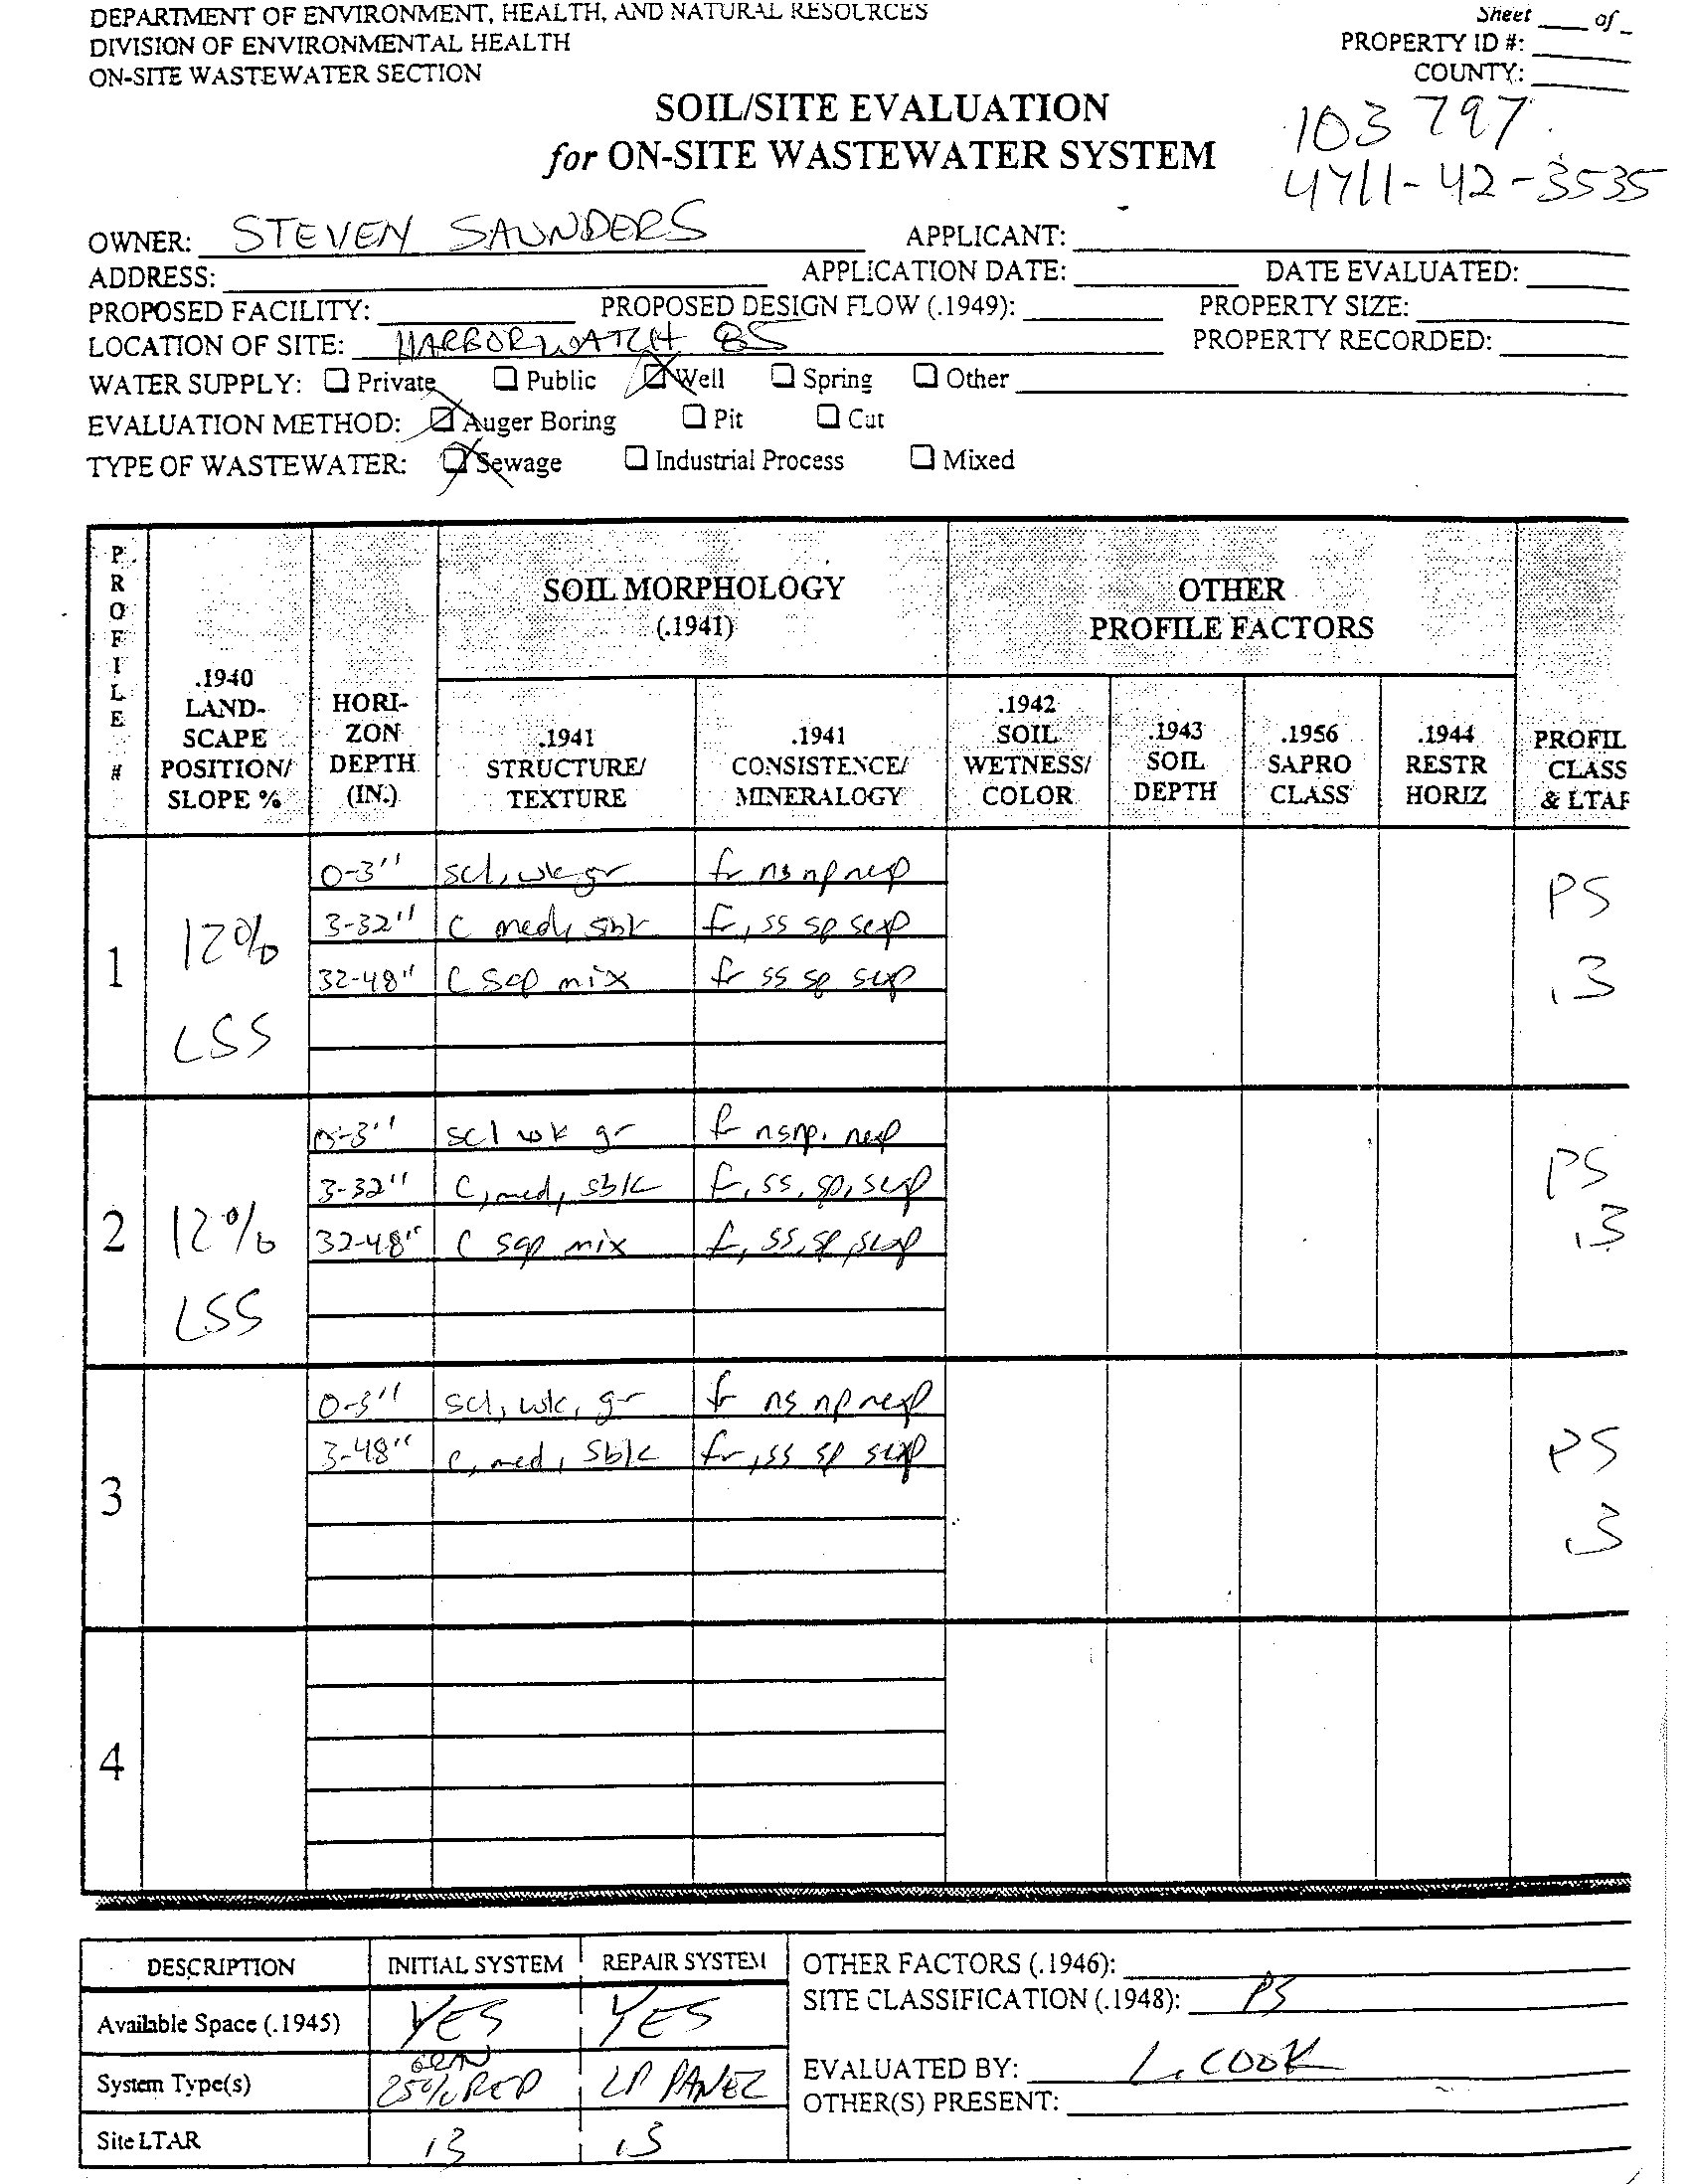 DEPARTMENT OF ENVIRONMENT, HEALTH, AND NATURAL RESOURCES
Sheet ___ of _
DIVISION OF ENVIRONMENTAL HEALTH
PROPERTY ID #:
ON-SITE WASTEWATER SECTION
COUNTY:
SOIL/SITE EVALUATION
for ON-SITE WASTEWATER SYSTEM
103797
4711-42-3535
OWNER: STEVEN SAUNDERS APPLICANT:
ADDRESS: APPLICATION DATE: DATE EVALUATED:
PROPOSED FACILITY: PROPOSED DESIGN FLOW (.1949): PROPERTY SIZE:
LOCATION OF SITE: HARBORWATCH 85 PROPERTY RECORDED:
WATER SUPPLY: ☐ Private ☐ Public ☒ Well ☐ Spring ☐ Other
EVALUATION METHOD: ☒ Auger Boring ☐ Pit ☐ Cut
TYPE OF WASTEWATER: ☒ Sewage ☐ Industrial Process ☐ Mixed
PROFILE #
.1940 LAND-SCAPE POSITION/ SLOPE %
HORI-ZON DEPTH (IN.)
SOIL MORPHOLOGY
(.1941)
.1941 STRUCTURE/ TEXTURE
.1941 CONSISTENCE/ MINERALOGY
OTHER
PROFILE FACTORS
.1942 SOIL WETNESS/ COLOR
.1943 SOIL DEPTH
.1956 SAPRO CLASS
.1944 RESTR HORIZ
PROFIL CLASS & LTAR
1
12%
LSS
0-3" scl, wk gr fr ns np nexp
3-32" C med, sbk fr, ss sp sexp
32-48" C sap mix fr ss sp sexp
PS
.3
2
12%
LSS
0-3" scl wk gr fr nsnp. nexp
3-32" C, med, sbk fr, ss, sp, sexp
32-48" C sap mix fr, ss, sp, sexp
PS
.3
3
0-3" scl, wk, gr fr ns np nexp
3-48" c, med, sbk fr, ss sp sexp
PS
.3
4
DESCRIPTION INITIAL SYSTEM REPAIR SYSTEM
Available Space (.1945) YES YES
System Type(s) 25% RED LP PANEL
Site LTAR .3 .3
OTHER FACTORS (.1946):
SITE CLASSIFICATION (.1948): PS
EVALUATED BY: L. COOK
OTHER(S) PRESENT: